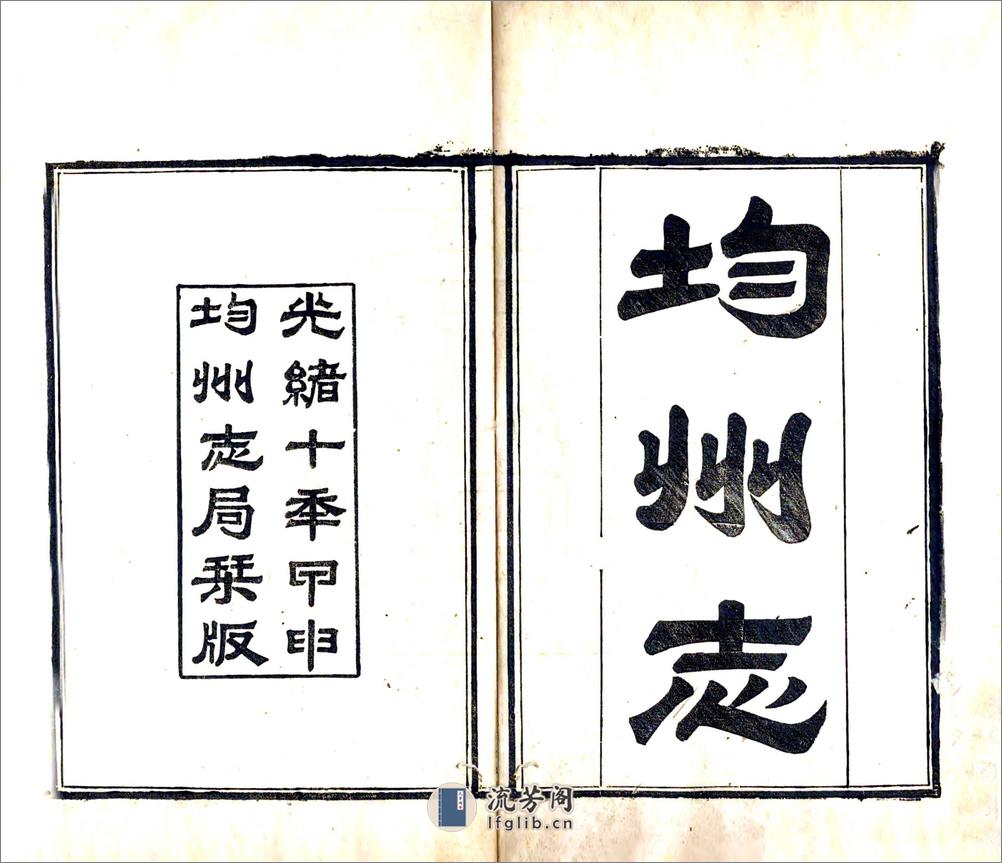 均州志
光緒十年甲申
均州志局栞版
流芳阁
lfglib.cn